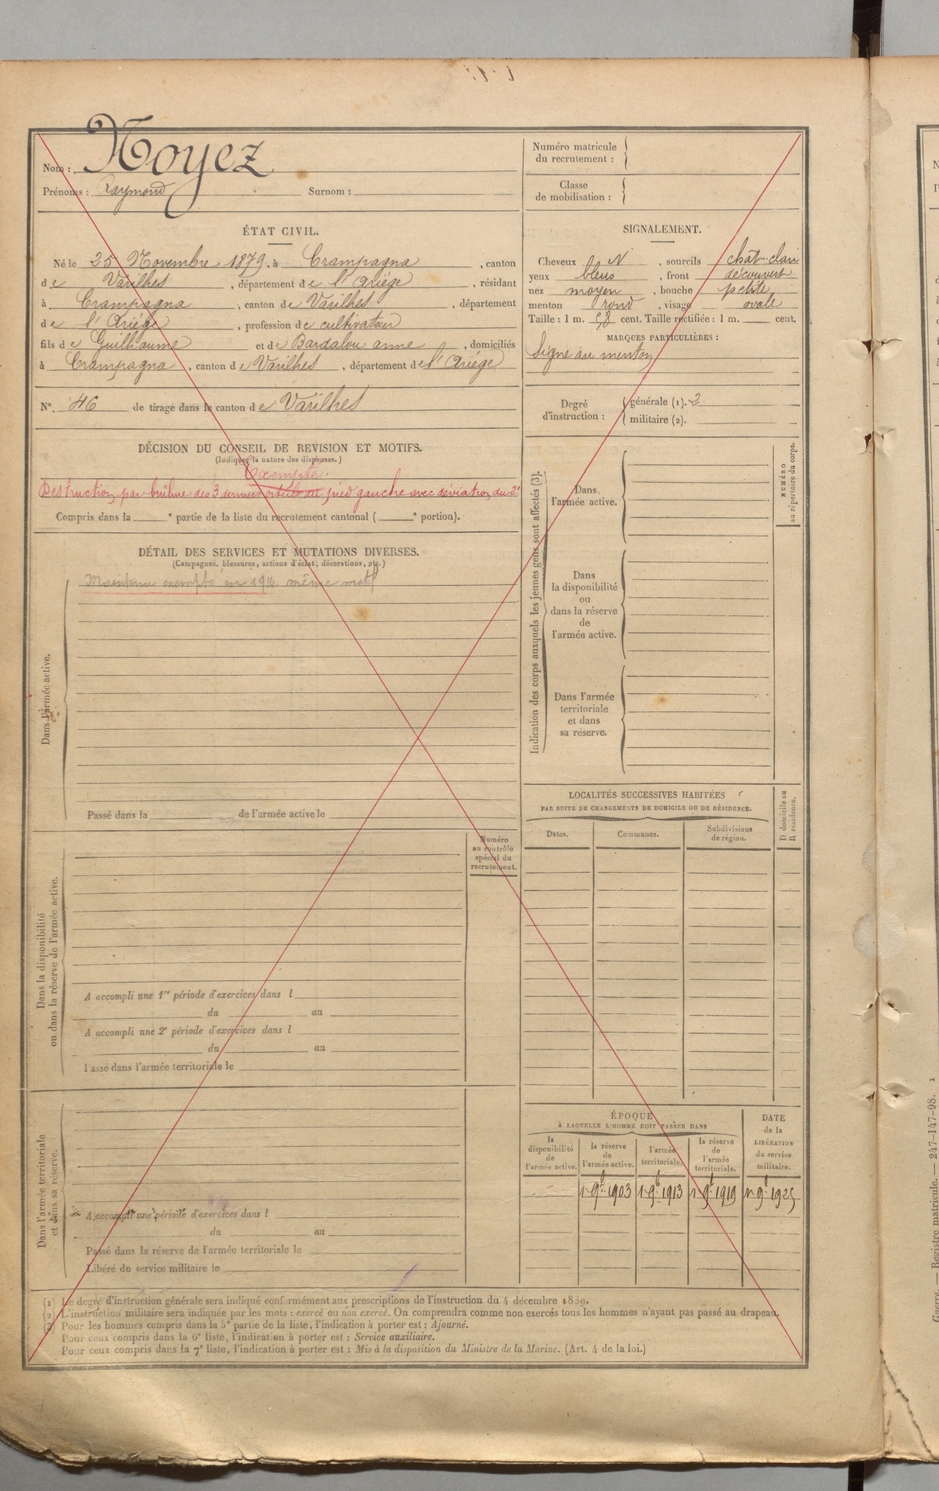 Nom : Noyez
Prénoms : Raymond Surnom :
Numéro matricule du recrutement :
Classe de mobilisation :
ÉTAT CIVIL.
Né le 25 Novembre 1879, à Crampagna, canton
de Varilhes, département de l'Ariège, résidant
à Crampagna, canton de Varilhes, département
de l'Ariège, profession de cultivateur
fils de Guilhaume et de Bardalou anne, domiciliés
à Crampagna, canton de Varilhes, département de l'Ariège
N°. 46 de tirage dans le canton de Varilhes
DÉCISION DU CONSEIL DE REVISION ET MOTIFS.
(Indiquer la nature des dispenses.)
Exempté.
Destruction par brûlure des 3 derniers orteils du pied gauche avec déviation du 2e
Compris dans la e partie de la liste du recrutement cantonal ( e portion).
DÉTAIL DES SERVICES ET MUTATIONS DIVERSES.
(Campagnes, blessures, actions d'éclat, décorations, etc.)
Maintenu exempté en 1914. même motif
Dans l'armée active.
Passé dans la de l'armée active le
Numéro au contrôle spécial du recrutement.
Dans la disponibilité ou dans la réserve de l'armée active.
A accompli une 1re période d'exercices dans l
du au
A accompli une 2e période d'exercices dans l
du au
Passé dans l'armée territoriale le
Dans l'armée territoriale et dans sa réserve.
A accompli une période d'exercices dans l
du au
Passé dans la réserve de l'armée territoriale le
Libéré du service militaire le
SIGNALEMENT.
Cheveux N, sourcils chat-clair
yeux bleus, front découvert
nez moyen, bouche petite
menton rond, visage ovale
Taille : 1 m. 58 cent. Taille rectifiée : 1 m. cent.
MARQUES PARTICULIÈRES :
Signe au menton
Degré d'instruction :
générale (1). 2
militaire (2).
Indication des corps auxquels les jeunes gens sont affectés (3).
Dans l'armée active.
Dans la disponibilité ou dans la réserve de l'armée active.
Dans l'armée territoriale et dans sa réserve.
NUMÉRO au répertoire du corps.
LOCALITÉS SUCCESSIVES HABITÉES
PAR SUITE DE CHANGEMENTS DE DOMICILE OU DE RÉSIDENCE.
Dates. Communes. Subdivisions de région.
D domicile ou R résidence.
ÉPOQUE
À LAQUELLE L'HOMME DOIT PASSER DANS
la disponibilité de l'armée active.
la réserve de l'armée active.
l'armée territoriale.
la réserve de l'armée territoriale.
DATE de la LIBÉRATION du service militaire.
1 9bre 1903 1 9bre 1913 1 9bre 1919 1 9bre 1925
(1) Le degré d'instruction générale sera indiqué conformément aux prescriptions de l'instruction du 4 décembre 1889.
(2) L'instruction militaire sera indiquée par les mots : exercé ou non exercé. On comprendra comme non exercés tous les hommes n'ayant pas passé au drapeau.
(3) Pour les hommes compris dans la 5e partie de la liste, l'indication à porter est : Ajourné.
Pour ceux compris dans la 6e liste, l'indication à porter est : Service auxiliaire.
Pour ceux compris dans la 7e liste, l'indication à porter est : Mis à la disposition du Ministre de la Marine. (Art. 4 de la loi.)
Guerre. — Registre matricule. — 247-147-98.